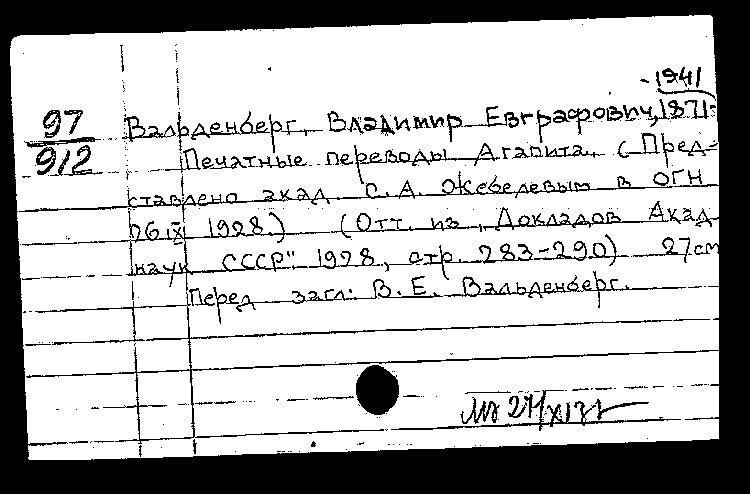 -1941
97
912
Вальденберг, Владимир Евграфович, 1871-
Печатные переводы Агапита. (Пред-
ставлено акад. С. А. Жебелевым в ОГН
26 IX 1928.) (Отт. из „Докладов Акад.
наук СССР" 1928, стр. 283-290) 27 см
Перед загл: В. Е. Вальденберг.